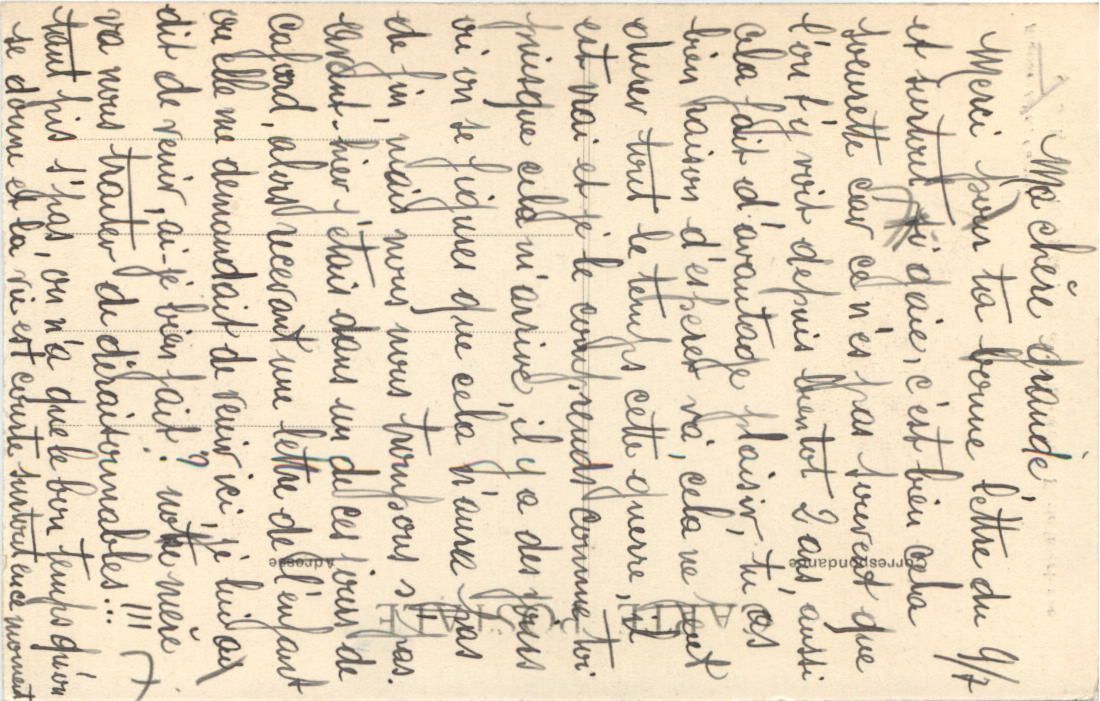 Ma chère grande,
Merci pour ta bonne lettre du 9/7
et surtout si gaie, c'est bien cela
soeurette car ce n'es pas souvent que
l'on s'y voit depuis bientot 2 ans, aussi
cela fait d'avantage plaisir, tu as
bien raison d'espérer va, cela ne peut
durer tout le temps cette guerre, il
est vrai et je le comprends comme toi
puisque cela m'arrive, il y a des jours
où on se figure que cela n'aura pas
de fin, mais nous nous trompons s pas.
tendant hier j'étais dans un de ces jours de
cafard, alors recevant une lettre de l'enfant
où elle me demandait de venir ici je lui ai
dit de venir, ai-je bien fait? notre mère
va nous traiter de déraisonnables... !!!
tant pis s'pas, on n'a que le bon temps qu'on
se donne et la vie est courte surtout en ce moment
CARTE POSTALE
Correspondance
Adresse